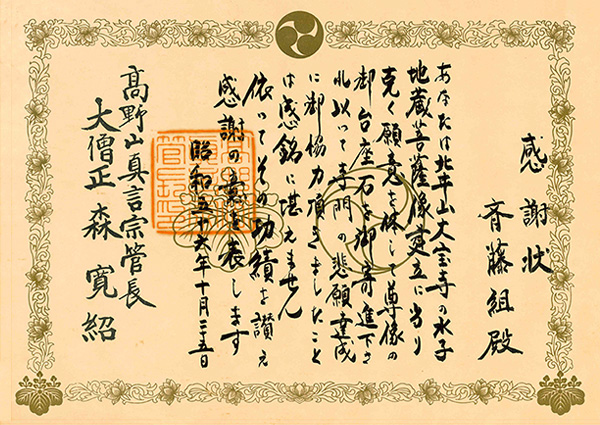 感謝状
斉藤組殿
あなたは北斗山大宝寺の水子
地蔵菩薩像建立に当り
克く願意を体し尊像の
御台座石を御寄進下さ
れ以って寺門の悲願達成
に御協力頂きましたこと
は感銘に堪えません
依ってその功績を讃え
感謝の意を表します
昭和五十六年十月二五日
高野山真言宗管長
大僧正 森寛紹